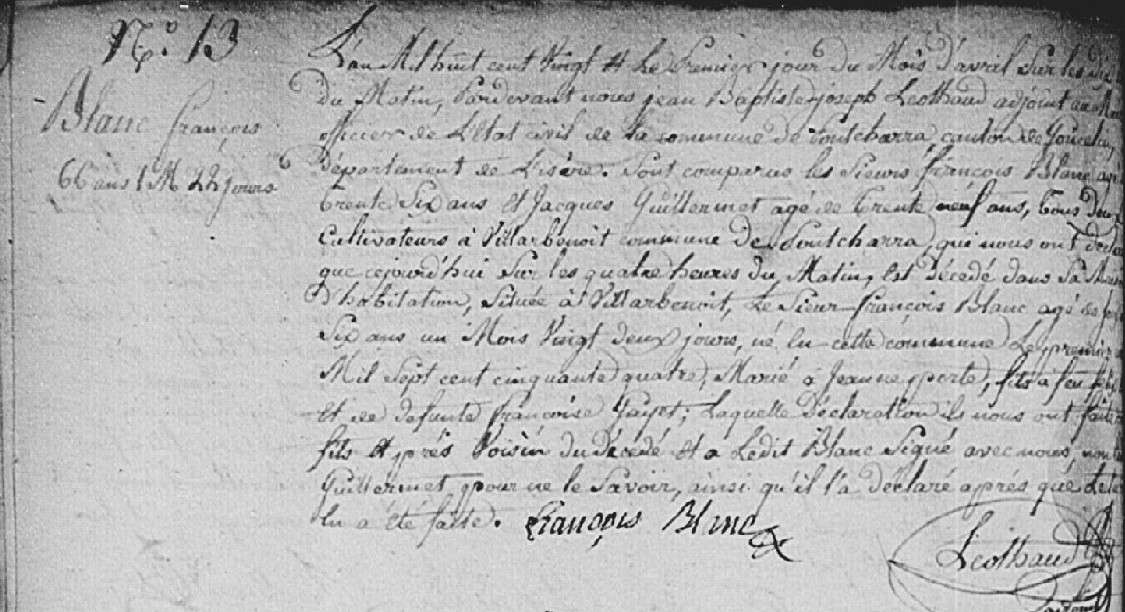 N.º 13
Blanc françois
66 ans 1 M 22 jours
L'an Mil huit cent Vingt et Le Premier jour du Mois d'avril Sur les dix
du Matin, Pardevant nous jean Baptiste joseph Leothaud adjoint au
officier de L'Etat civil de la commune de Pontcharra, canton de Goncelin,
Département de L'isère. Sont comparus les Sieurs françois Blanc agé
trente Six ans Et Jacques Guillermet agé de trente neuf ans, tous deux
Cultivateurs à Villarbenoit commune de Pontcharra, qui nous ont
que cejourd'hui Sur les quatre heures du Matin, est Décédé dans Sa
D'habitation, Située à Villarbenoit, Le Sieur françois Blanc agé de
Six ans un Mois Vingt deux jours, né en cette commune Le premier
Mil Sept cent cinquante quatre, Marié à Jeanne perte, fils à feu
Et de defunte françoise Gayet; Laquelle Déclaration ils nous ont faite
fils et près Voisin du Décédé Et a Ledit Blanc Signé avec nous,
Guillermet pour ne le Savoir, ainsi qu'il l'a déclaré après que
lu a été faite. François Blanc
Leothaud